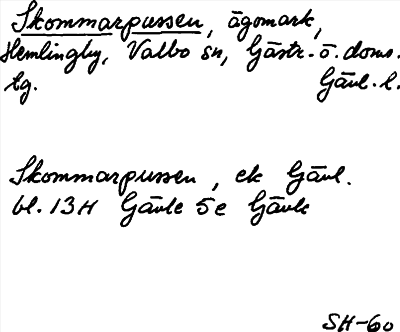 Skommarpussen, ägomark,
Hemlingby, Valbo sn, Gästr. ö. doms.
tg. Gävl. l.
Skommarpussen, ek Gävl.
bl. 13H Gävle 5e Gävle
SH-60